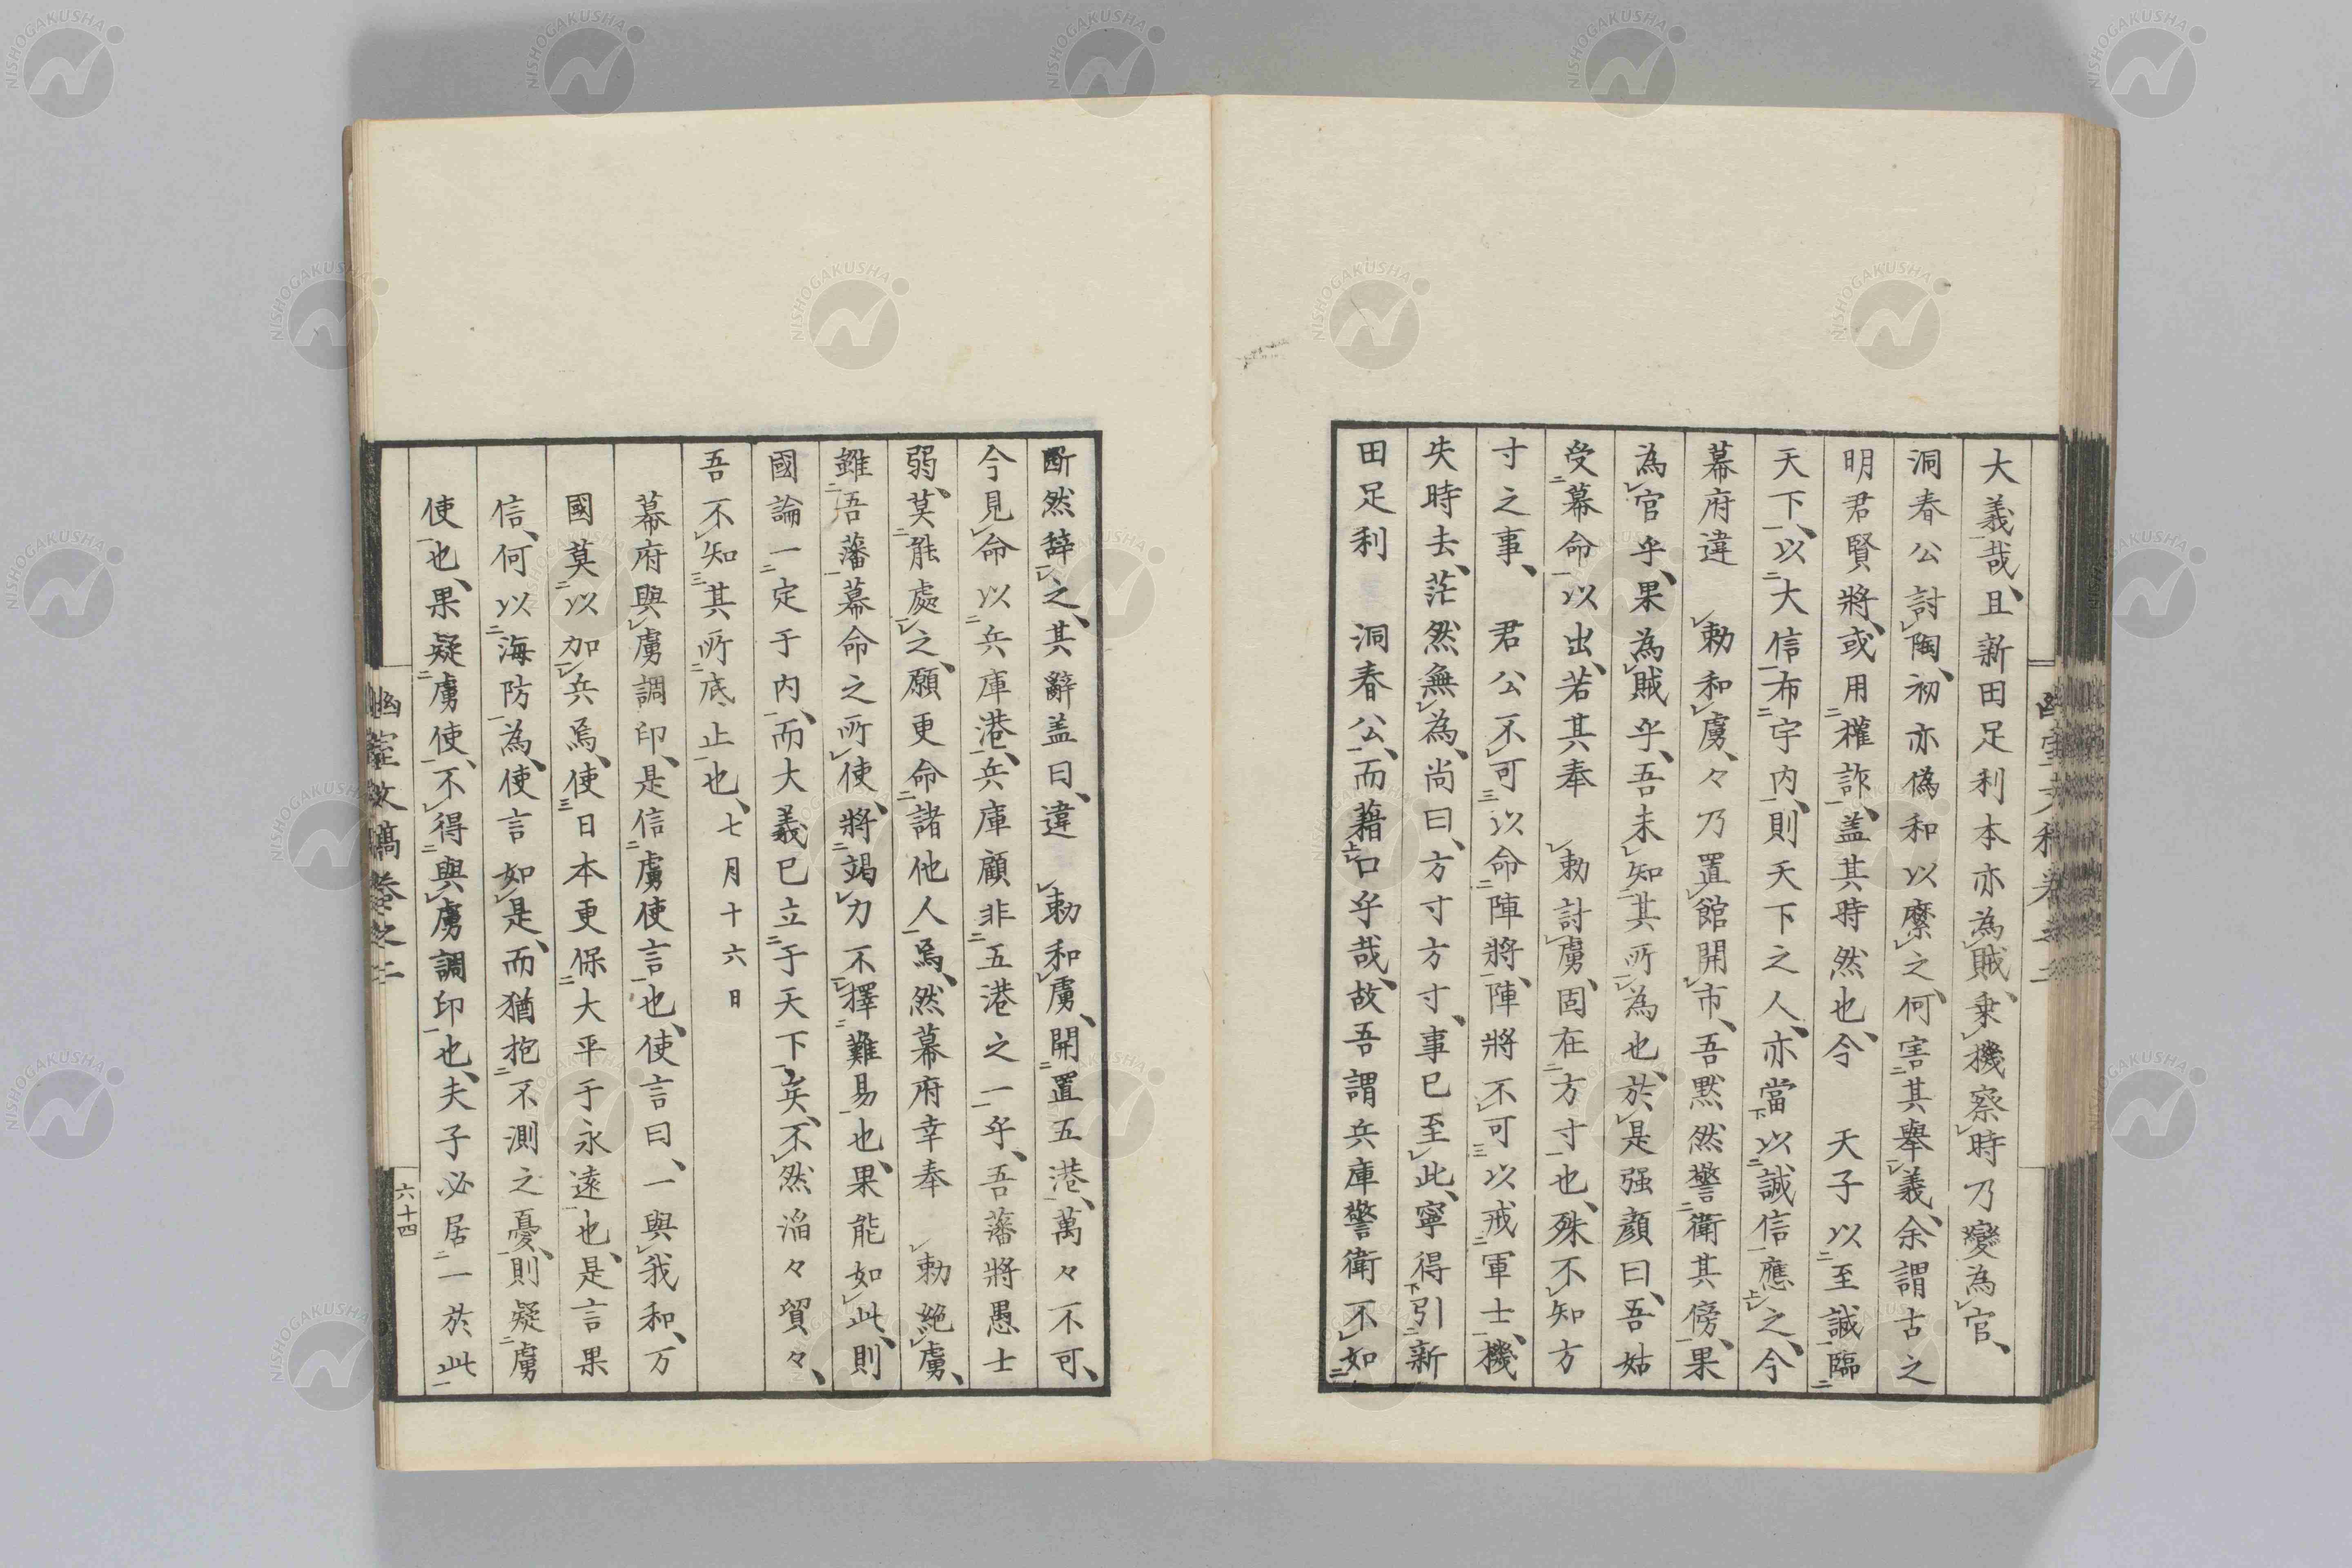 大義哉、且新田足利本亦為賊、乗機察時乃變為官、
洞春公討陶、初亦偽和以縻之、何害其舉義、余謂古之
明君賢將、或用權詐、盖其時然也、今　天子以至誠臨
天下、以大信布宇内、則天下之人、亦當以誠信應之、今
幕府違　勅和虜、々乃置館開市、吾黙然警衛其傍、果
為官乎、果為賊乎、吾未知其所為也、於是强顔曰、吾姑
受幕命以出、若其奉　勅討虜、固在方寸也、殊不知方
寸之事、　君公不可以命陣將、陣將不可以戒軍士、機
失時去、茫然無為、尚曰、方寸方寸、事已至此、寧得引新
田足利　洞春公、而藉口乎哉、故吾謂兵庫警衛不如
断然辞之、其辭盖曰、違　勅和虜、開置五港、萬々不可、
今見命以兵庫港、兵庫顧非五港之一乎、吾藩將愚士
弱、莫能處之、願更命諸他人焉、然幕府幸奉　勅絶虜、
雖吾藩幕命之所使、將竭力不擇難易也、果能如此、則
國論一定于内、而大義已立于天下矣、不然滔々貿々、
吾不知其所底止也、七月十六日
幕府與虜調印、是信虜使言也、使言曰、一與我和、万
國莫以加兵焉、使日本更保大平于永遠也、是言果
信、何以海防為、使言如是、而猶抱不測之憂、則疑虜
使也、果疑虜使、不得與虜調印也、夫子必居一於此
幽室文稿卷之二
六十四